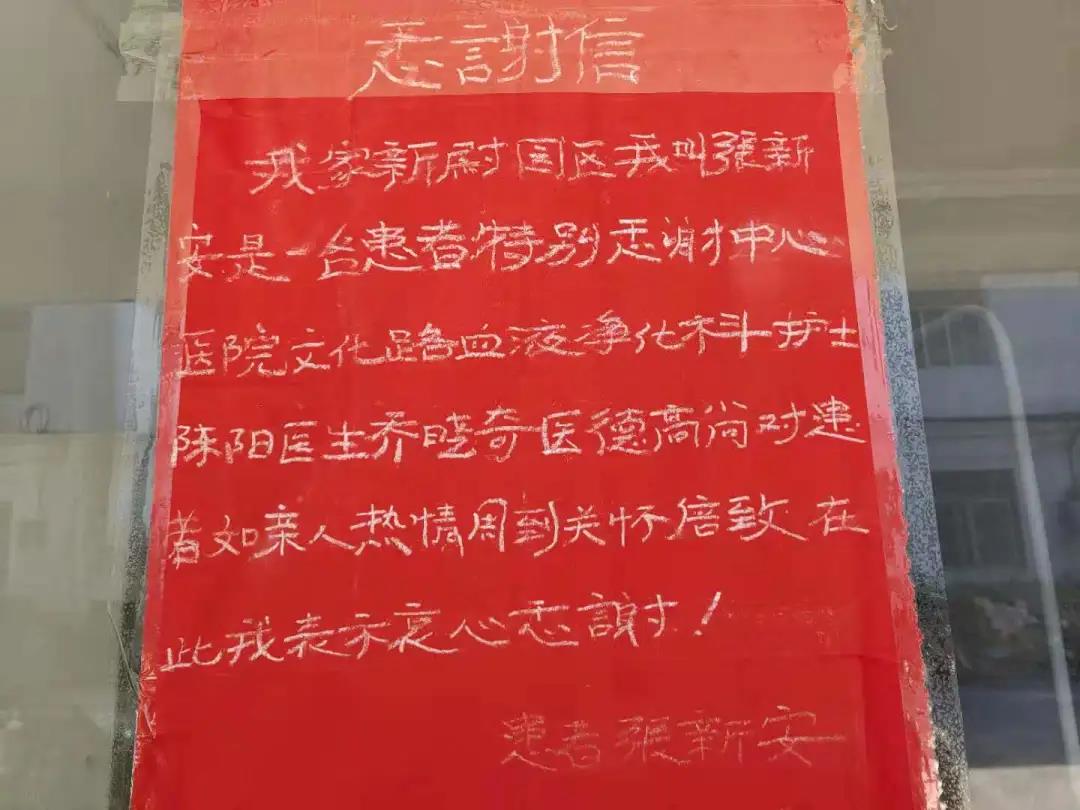 忎謝信
我家新尉园区我叫張新
安是一台患者特别忎谢中心
医院文化路血液净化科护士
陈阳医生乔晓奇医德高尚对患
者如亲人热情周到关怀倍致在
此我表示衷心忎謝！
患者張新安